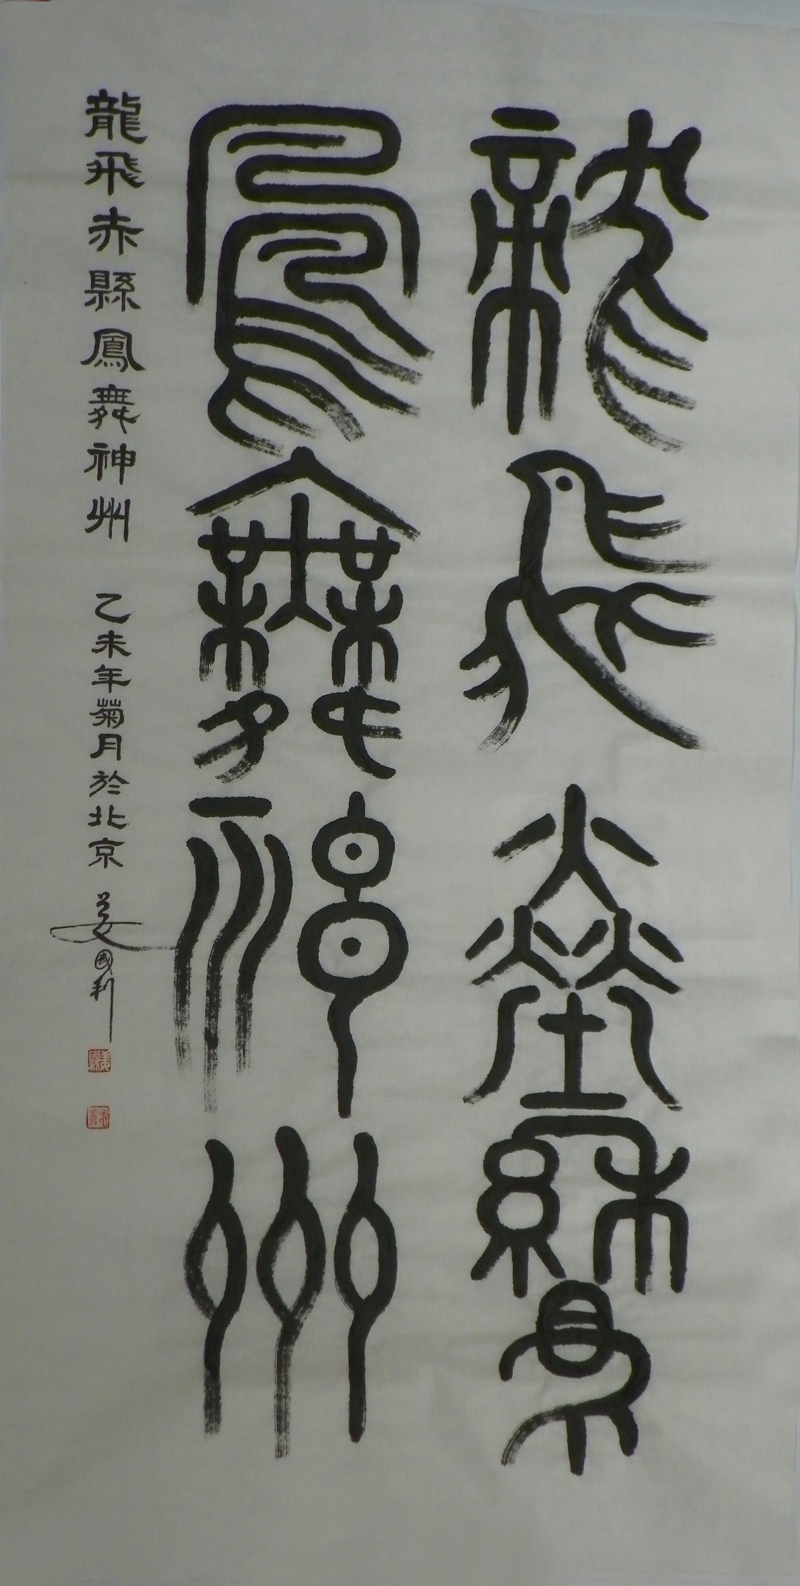 龍飛赤縣
鳳舞神州
龍飛赤縣鳳舞神州 乙未年菊月於北京 姜國利